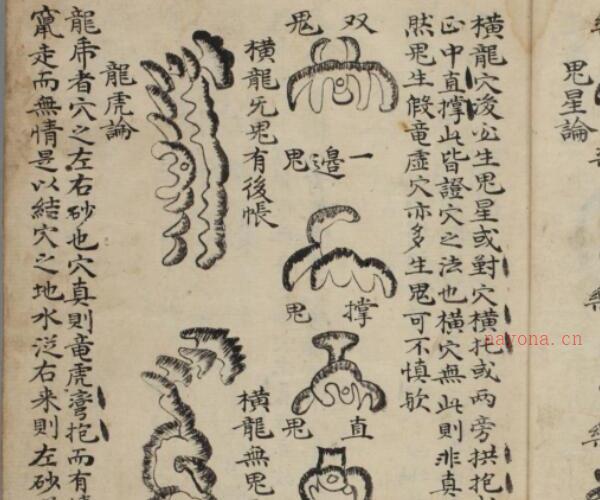 鬼星論
橫龍穴後必生鬼星或對穴橫托或兩旁拱抱
正中直撑此皆證穴之法也橫穴無此則非真
然鬼生假竜虛穴亦多生鬼可不慎欤
双鬼
一邊鬼
撑鬼
直鬼
橫龍旡鬼有後帳
橫龍無鬼
龍虎論
龍虎者穴之左右砂也穴真則竜虎彎抱而有情
竄走而無情是以結穴之地水泛右来則左砂
nayona.cn